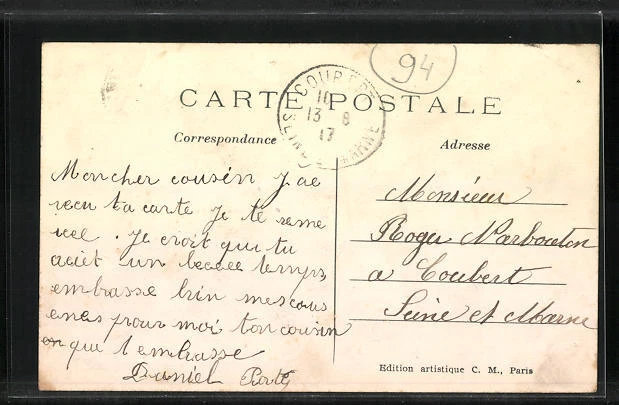 94
CARTE POSTALE
COUBERT
11
13 8
17
SEINE MARNE
Correspondance
Adresse
Mon cher cousin J ae
recu ta carte Je te reme
icee . Je croit que tu
aciit un beeee temps
embrasse bien mes cous
enes pour moi ton cousin
qui t embrasse
Daniel
Monsieur
Roger Narbouton
a Coubert
Seine et Marne
Edition artistique C. M., Paris